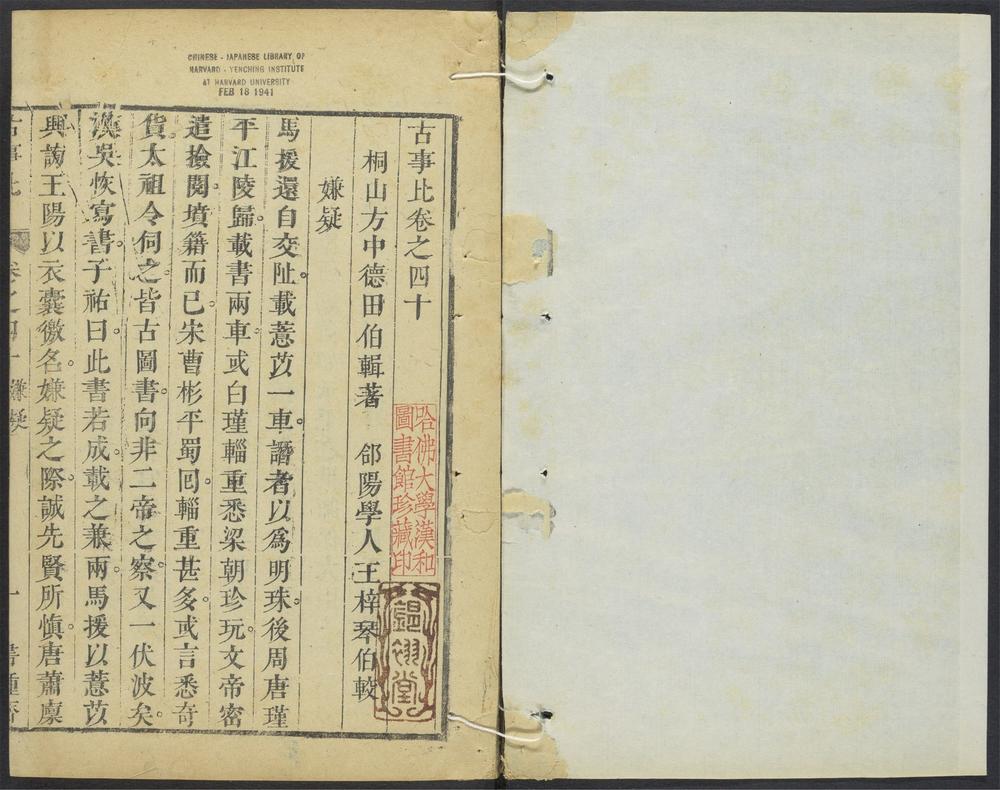 CHINESE - JAPANESE LIBRARY OF
HARVARD - YENCHING INSTITUTE
AT HARVARD UNIVERSITY
FEB 18 1941
古事比卷之四十
桐山方中德田伯輯著 郃陽學人王梓琴伯較
嫌疑
馬援還自交阯載薏苡一車譖者以爲明珠後周唐瑾
平江陵歸載書兩車或白瑾輜重悉梁朝珍玩文帝密
遣撿閱墳籍而已宋曹彬平蜀囘輜重甚多或言悉奇
貨太祖令伺之皆古圖書向非二帝之察又一伏波矣
漢吳恢寫書子祐曰此書若成載之兼兩馬援以薏苡
興謗王陽以衣囊徼名嫌疑之際誠先賢所慎唐蕭廩
古事比 卷之四十 嫌疑 一 書種齋
哈佛大學漢和
圖書館珍藏印